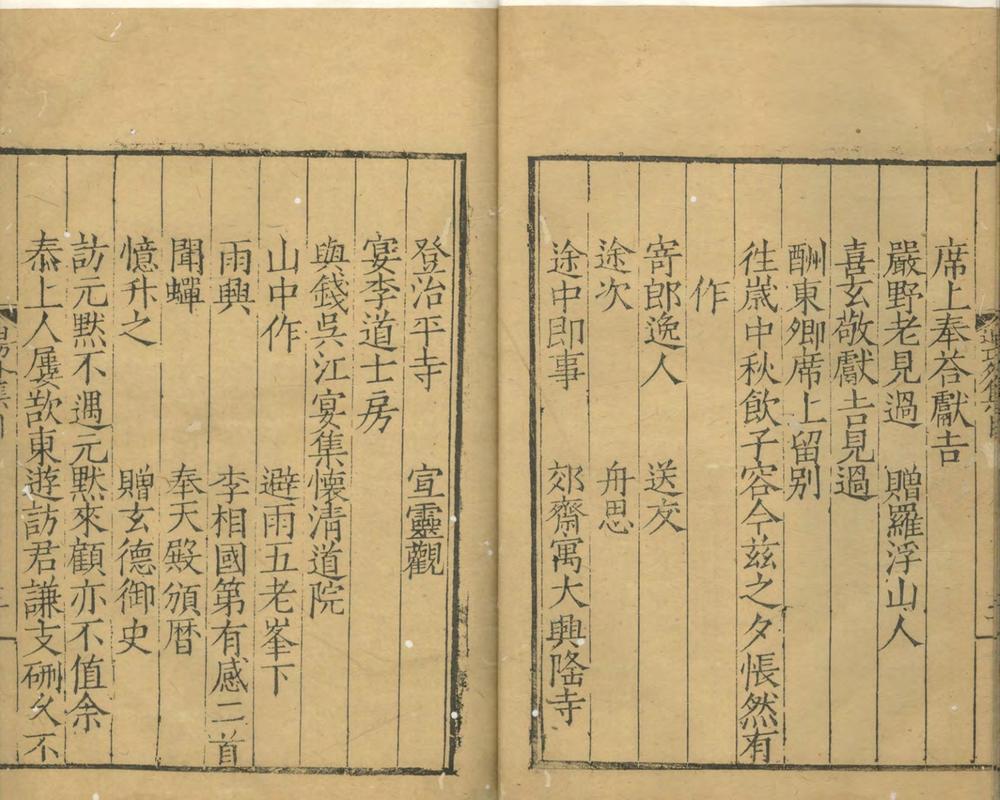 席上奉荅獻吉
嚴野老見過 贈羅浮山人
喜玄敬獻吉見過
酬東卿席上留别
徃嵗中秋飲子容今茲之夕悵然有
作
寄郎逸人 送友
途次 舟思
途中即事 郊齋寓大興隆寺
登治平寺 宣靈觀
宴李道士房
與錢吳江宴集懷清道院
山中作 避雨五老峯下
雨興 李相國第有感二首
聞蟬 奉天殿頒曆
憶升之 贈玄德御史
訪元默不遇元默來顧亦不值余
泰上人屢歆東遊訪君謙支硎久不